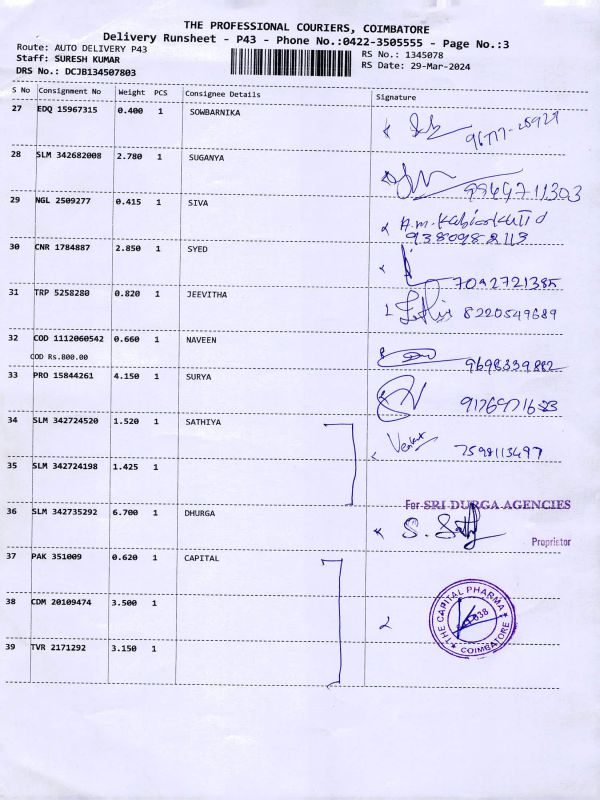 THE PROFESSIONAL COURIERS, COIMBATORE
Delivery Runsheet - P43 - Phone No.:0422-3505555 - Page No.:3
Route: AUTO DELIVERY P43
RS No.: 1345078
Staff: SURESH KUMAR
RS Date: 29-Mar-2024
DRS No.: DCJB134507803
S No Consignment No Weight PCS Consignee Details Signature
27 EDQ 15967315 0.400 1 SOWBARNIKA
28 SLM 342682008 2.780 1 SUGANYA
29 NGL 2509277 0.415 1 SIVA A.m.
9380988113
30 CNR 1784887 2.850 1 SYED 7092721385
31 TRP 5258280 0.820 1 JEEVITHA 8220549689
32 COD 1112060542 0.660 1 NAVEEN 9698339882
COD Rs.800.00
33 PRO 15844261 4.150 1 SURYA
34 SLM 342724520 1.520 1 SATHIYA Venkat 7598113497
35 SLM 342724198 1.425 1
For SRI DURGA AGENCIES
36 SLM 342735292 6.700 1 DHURGA
Proprietor
37 PAK 351009 0.620 1 CAPITAL
38 CDM 20109474 3.500 1
THE CAPITAL PHARMA
COIMBATORE
39 TVR 2171292 3.150 1